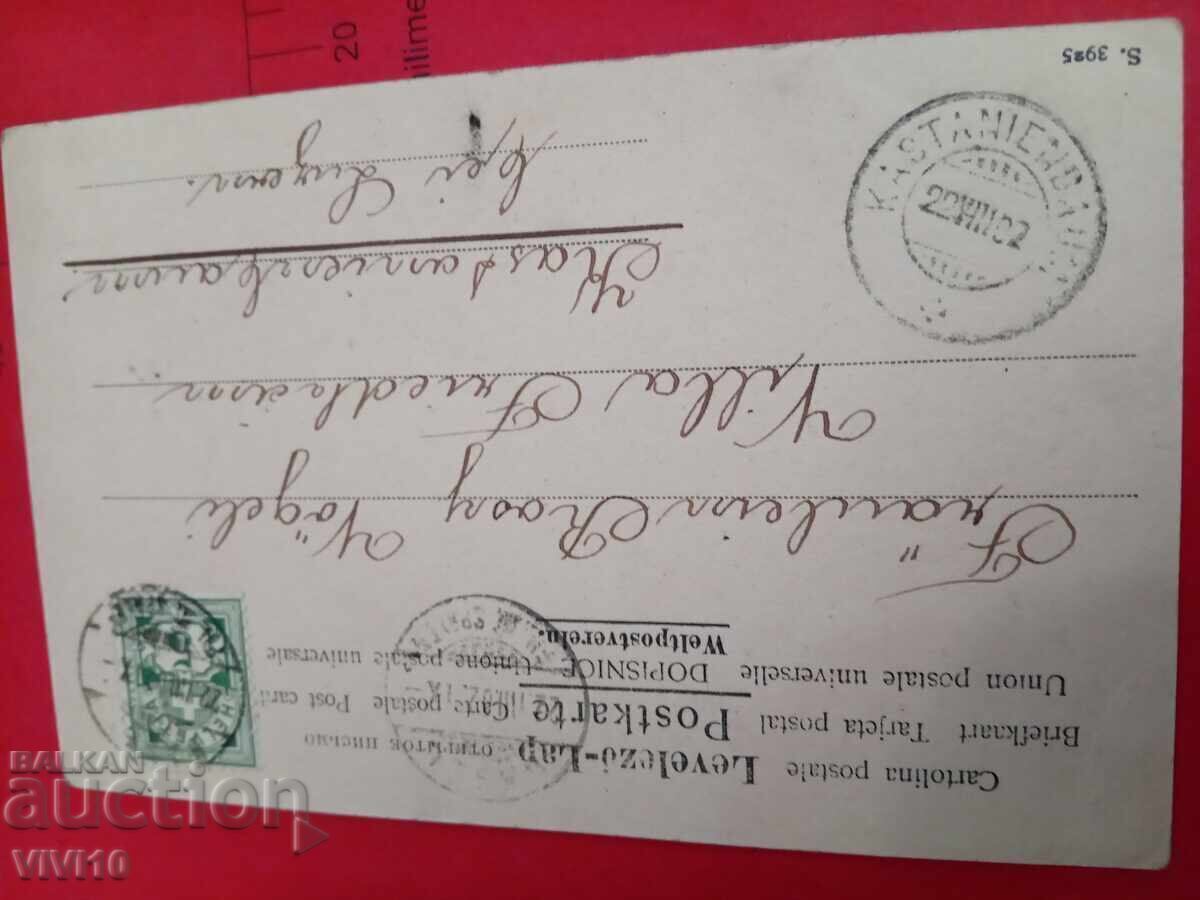 Cartolina postale Levelező-Lap открытое письмо
Briefkaart Tarjeta postal Postkarte Carte postale Post card
Union postale universelle DOPISNICE Unione postale universale
Weltpostverein.
Fräulein Rosy Vögeli
Villa Friedheim
Kastanienbaum
bei Luzern.
KASTANIENBAUM
22 VIII 02
HELVETIA
S. 3925
20
BALKAN
auction
VIVI10